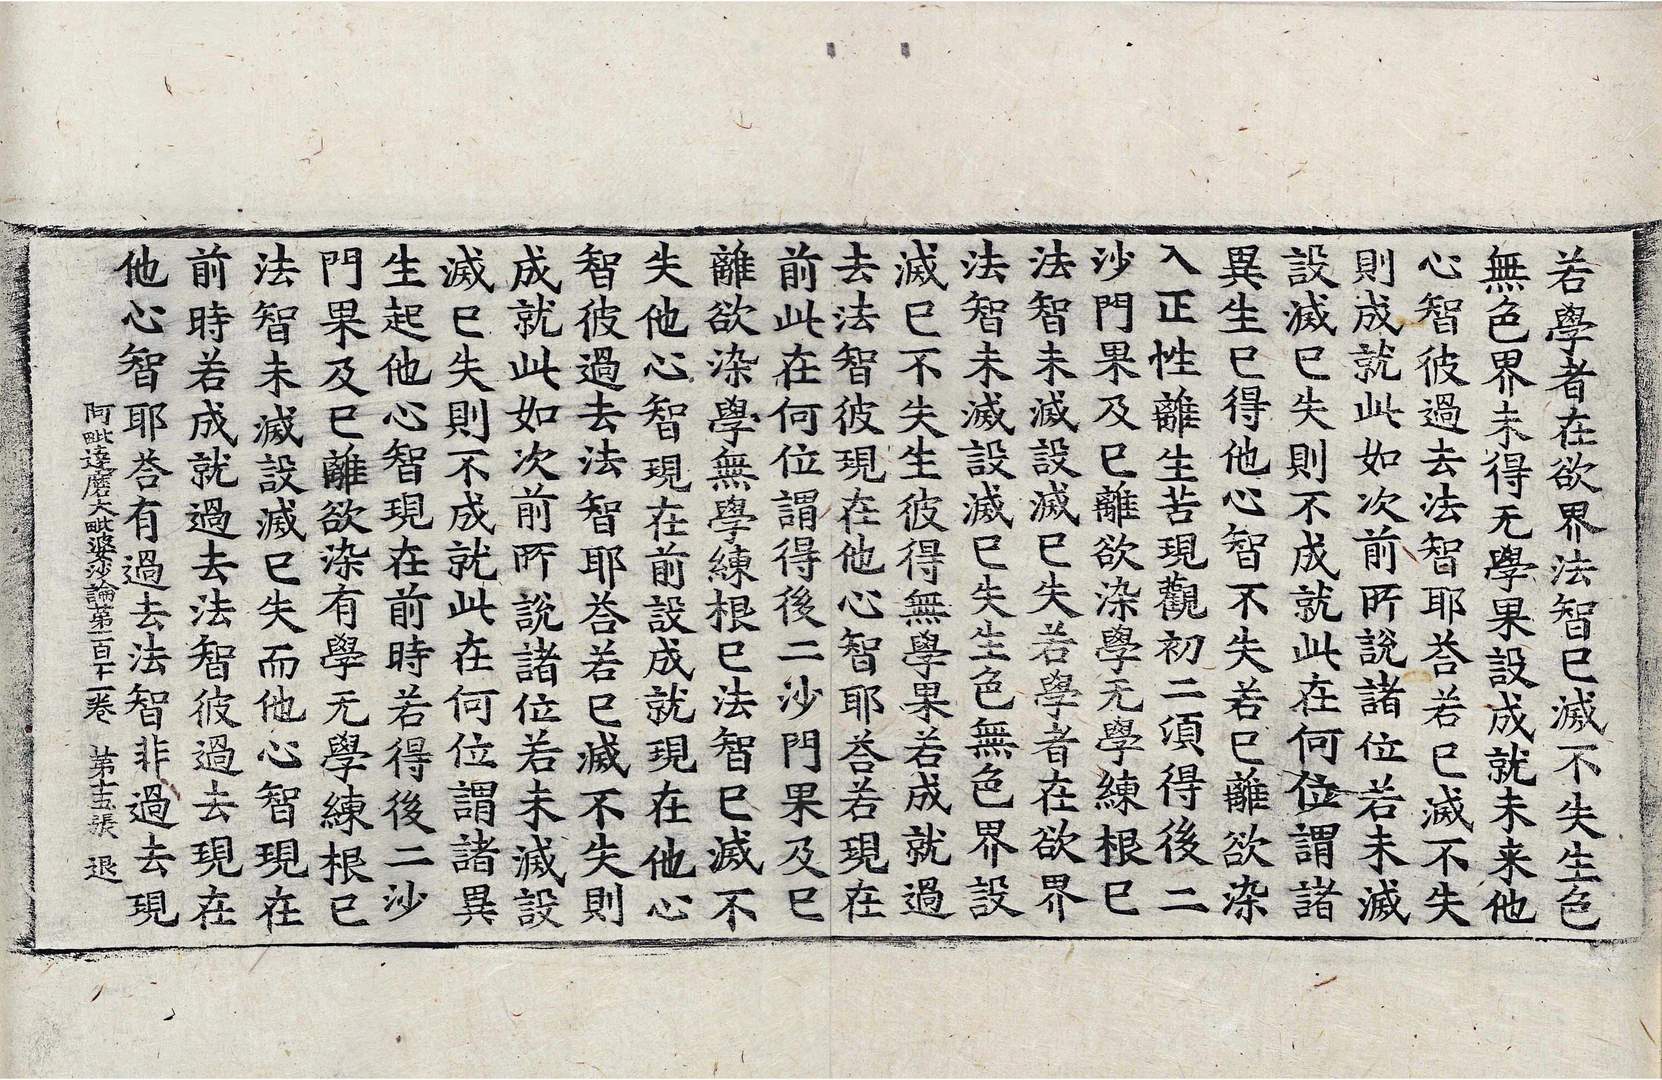 若學者在欲界法智已滅不失生色
無色界未得无學果設成就未来他
心智彼過去法智耶荅若已滅不失
則成就此如次前所說諸位若未滅
設滅已失則不成就此在何位謂諸
異生已得他心智不失若已離欲染
入正性離生苦現觀初二湏得後二
沙門果及已離欲染學无學練根已
法智未滅設滅已失若學者在欲界
法智未滅設滅已失生色無色界設
滅已不失生彼得無學果若成就過
去法智彼現在他心智耶荅若現在
前此在何位謂得後二沙門果及已
離欲染學無學練根已法智已滅不
失他心智現在前設成就現在他心
智彼過去法智耶荅若已滅不失則
成就此如次前所說諸位若未滅設
滅已失則不成就此在何位謂諸異
生起他心智現在前時若得後二沙
門果及已離欲染有學无學練根已
法智未滅設滅已失而他心智現在
前時若成就過去法智彼過去現在
他心智耶荅有過去法智非過去現
阿毗達磨大毗婆沙論第一百十一卷 第十五張 退